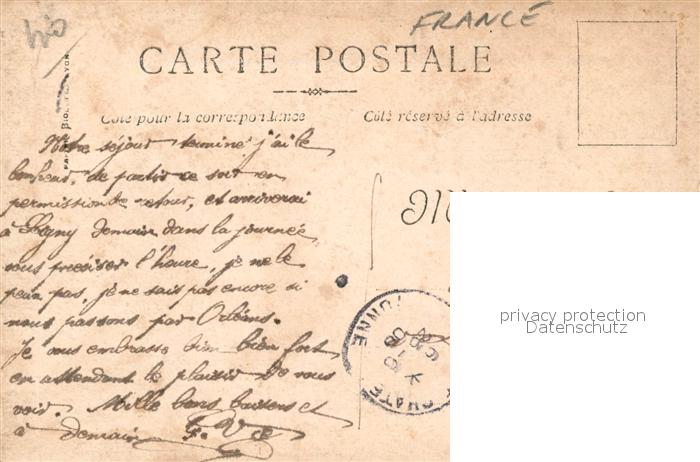 FRANCE
CARTE POSTALE
Côté pour la correspondance
Côté réservé à l'adresse
Notre séjour terminé j'ai le
bonheur, de partir ce soir en
permission de retour, et arriverai
à Ligny demain dans la journée,
vous préciser l'heure, je ne le
peux pas, je ne sais pas encore si
nous passons par Orléans.
Je vous embrasse bien bien fort
en attendant le plaisir de vous
voir. Mille bons baisers et
à demain
privacy protection
Datenschutz